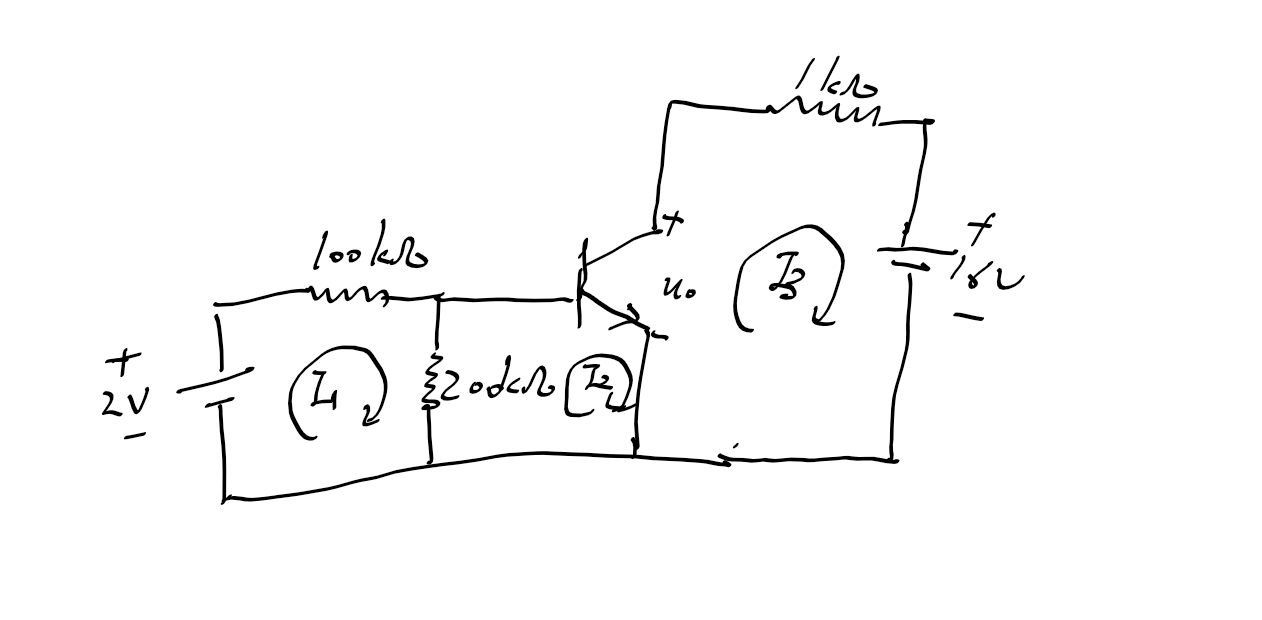 1kΩ
100kΩ
+
+
u₀
-
I₃
+
-
+
2V
-
I₁
200kΩ
I₂